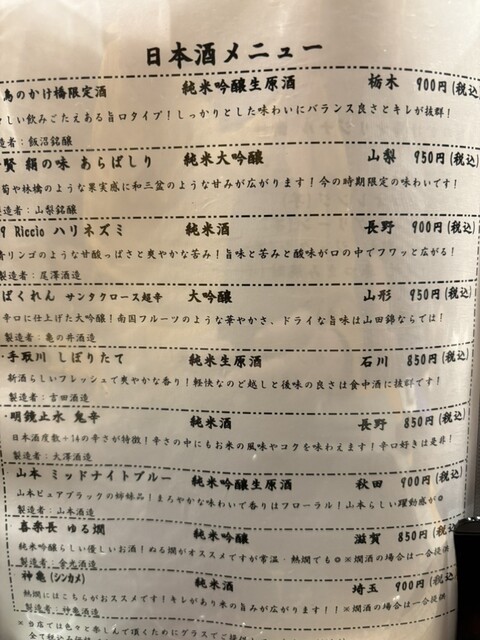 日本酒メニュー
鳥のかけ橋限定酒 純米吟醸生原酒 栃木 900円(税込)
しい飲みごたえある旨口タイプ!しっかりとした味わいにバランス良さとキレが抜群!
造者:飯沼銘醸
賢 絹の味 あらばしり 純米大吟醸 山梨 950円(税込)
萄や林檎のような果実感に和三盆のような甘みが広がります!今の時期限定の味わいです!
製造者:山梨銘醸
9 Riccio ハリネズミ 純米酒 長野 900円(税込)
青リンゴのような甘酸っぱさと爽やかな苦み!旨味と苦みと酸味が口の中でフワッと広がる!
製造者:尾澤酒造
ばくれん サンタクロース超辛 大吟醸 山形 950円(税込)
辛口に仕上げた大吟醸!南国フルーツのような華やかさ、ドライな旨味は山田錦ならでは!
製造者:亀の井酒造
・手取川 しぼりたて 純米生原酒 石川 850円(税込)
新酒らしいフレッシュで爽やかな香り!軽快なのど越しと後味の良さは食中酒に抜群です!
製造者:吉田酒造
・明鏡止水 鬼辛 純米酒 長野 850円(税込)
日本酒度数+14の辛さが特徴!辛さの中にもお米の風味やコクを味わえます!辛口好きは是非!
製造者:大澤酒造
山本 ミッドナイトブルー 純米吟醸生原酒 秋田 900円(税込)
山本ピュアブラックの姉妹品!まろやかな味わいで香りはフローラル!山本らしい躍動感が◎
製造者:山本酒造
喜楽長 ゆる燗 純米吟醸 滋賀 850円(税込)
純米吟醸らしい優しいお酒!ぬる燗がオススメですが常温・熱燗でも◎ ※燗酒の場合は一合提供
製造者:喜多酒造
神亀(シンカメ) 純米酒 埼玉 900円(税込)
熱燗にはこちらがおススメです!キレがあり米の旨みが広がります!!※燗酒の場合は一合提供
製造者:神亀酒造
※当店では色々と楽しんで頂くためにグラスでご提供
全て税込み価格